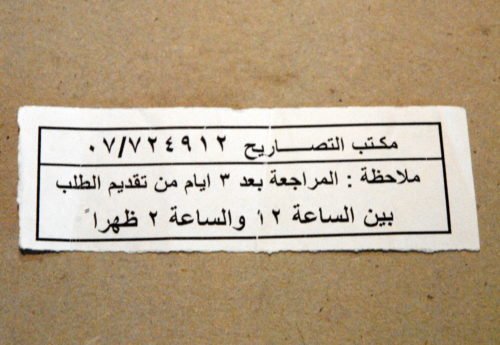 مكتب التصـــاريح ٠٧/٧٢٤٩١٢
ملاحظة : المراجعة بعد ٣ ايام من تقديم الطلب
بين الساعة ١٢ والساعة ٢ ظهراً